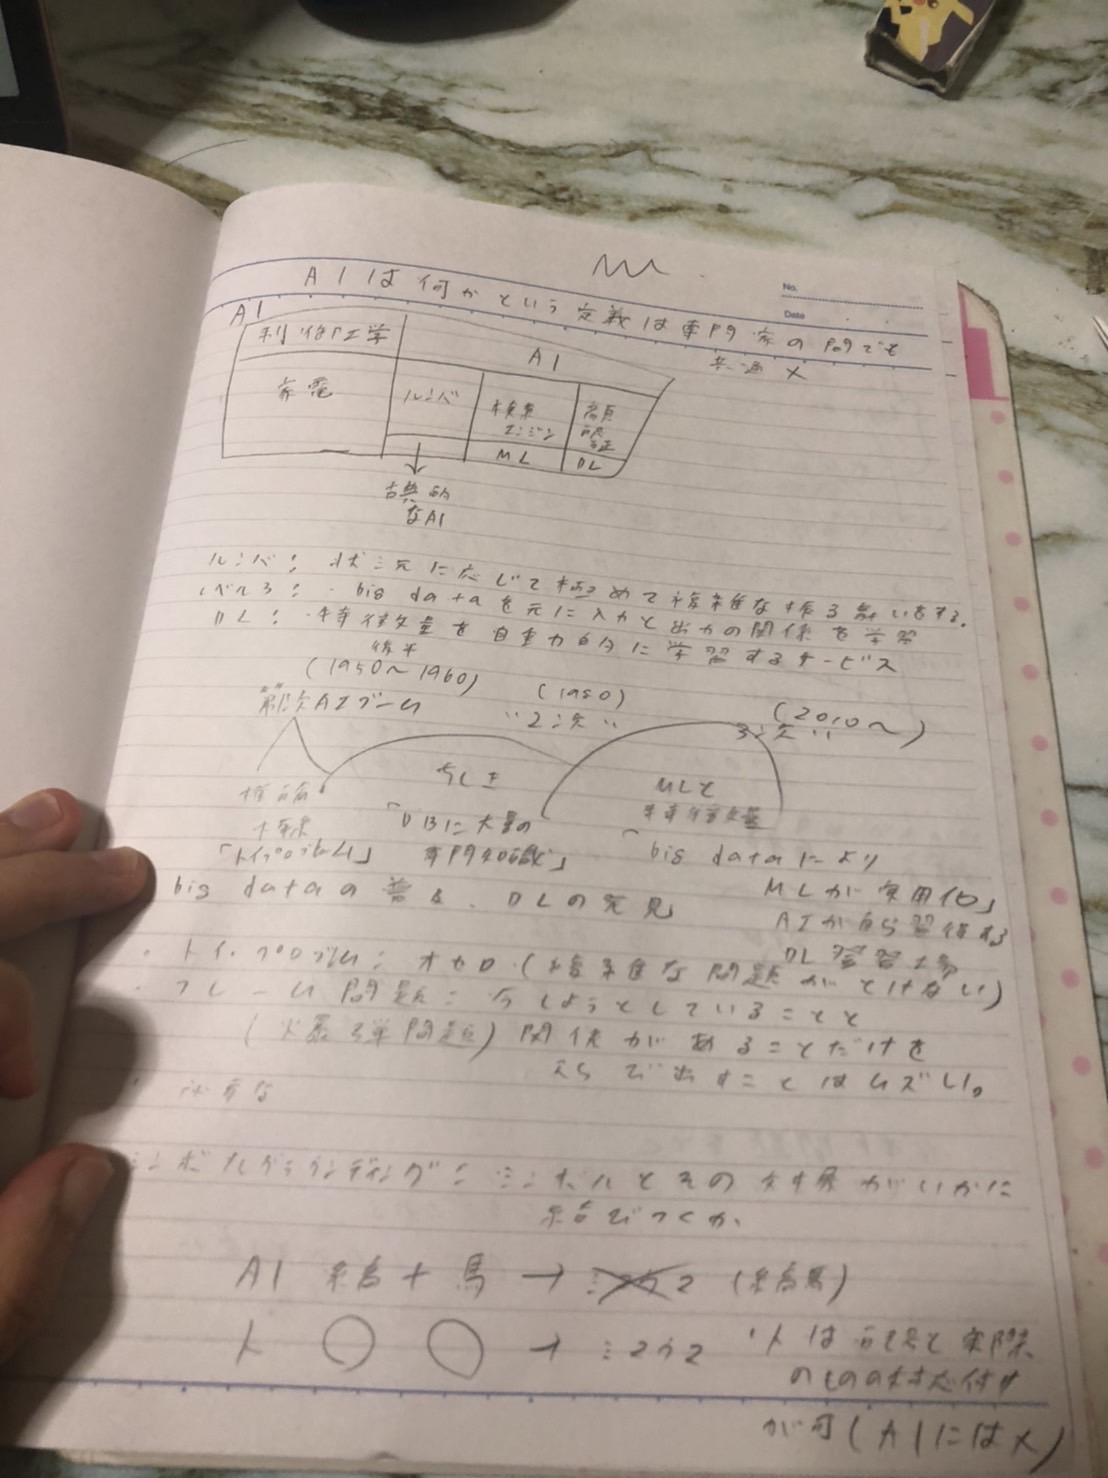 No.
Date
AIは何かという定義は専門家の間でも
共通 ×
AI
制御工学
AI
家電
ルンバ
検索
エンジン
顔
認
証
ML
DL
古典的
なAI
ルンバ: 状況に応じて極めて複雑な振る舞いをする。
レベル3: ・big dataを元に入力と出力の関係を学習
DL: ・特徴量を自動的に学習するサービス
後半
(1950〜1960)
(1980)
(2010〜)
第1次AIブーム
〃2次〃
3次〃
推論
探索
「トイプロブレム」
ちしき
「DBに大量の
専門知識」
MLと
特徴量
「big dataにより
MLが実用化」
AIが自ら習得する
DL登場
big dataの普及、DLの発見
・トイ・プロブレム: オセロ・(複雑な問題がとけない)
・フレーム問題: 今しようとしていることと
(爆弾問題) 関係があることだけを
えらび出すことはムズい。
シンボルグラウンディング: シンボルとその対象がいかに
結びつくか、
AI 縞+馬 → (縞馬)
ト ○ ○ →
のものの対応付け
が可(AIには×)